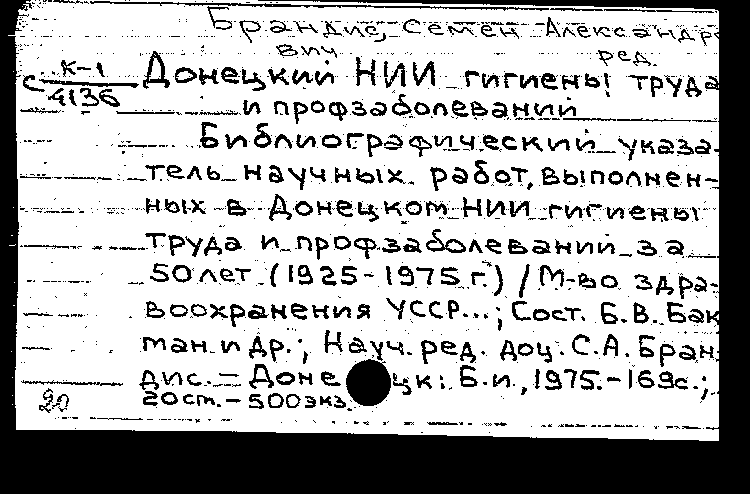 Брандис, Семен Александро
вич ред.
К-1 Донецкий НИИ гигиены труда
С 4136 и профзаболеваний
Библиографический указа-
тель научных работ, выполнен-
ных в Донецком НИИ гигиены
труда и профзаболеваний за
50 лет (1925-1975 г.) / М-во здра-
воохранения УССР...; Сост. Б.В. Бак
ман и др.; Науч. ред. доц. С.А. Бран
дис. – Донецк: Б.и., 1975. – 169с.;
20 20 ст. – 500 экз.